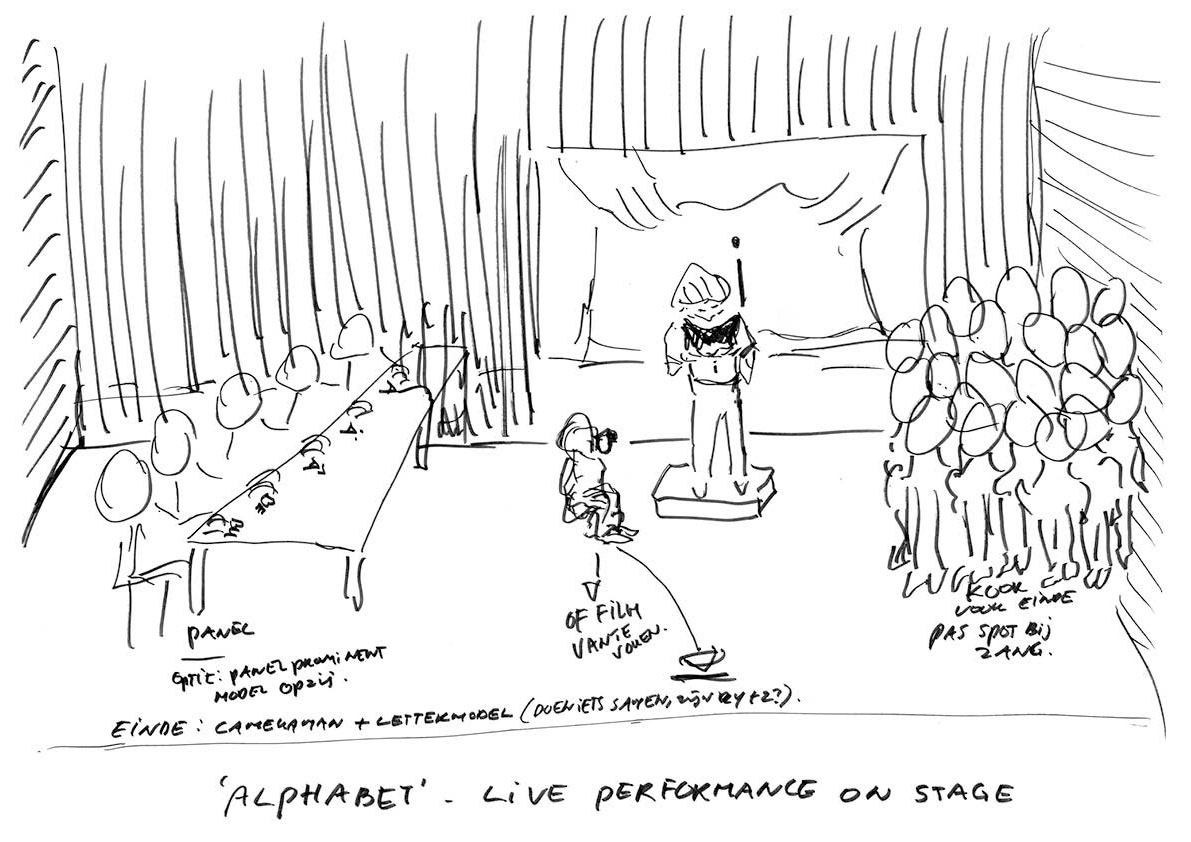 PANEL
OPTIE: PANEL PROMINENT
MODEL OPZIJ.
OF FILM
VAN TE
VOREN.
KOOR
VOOR EINDE
PAS SPOT BIJ
ZANG.
EINDE: CAMERAMAN + LETTERMODEL (DOEN IETS SAMEN, ZIJN XY + Z?).
'ALPHABET' - LIVE PERFORMANCE ON STAGE